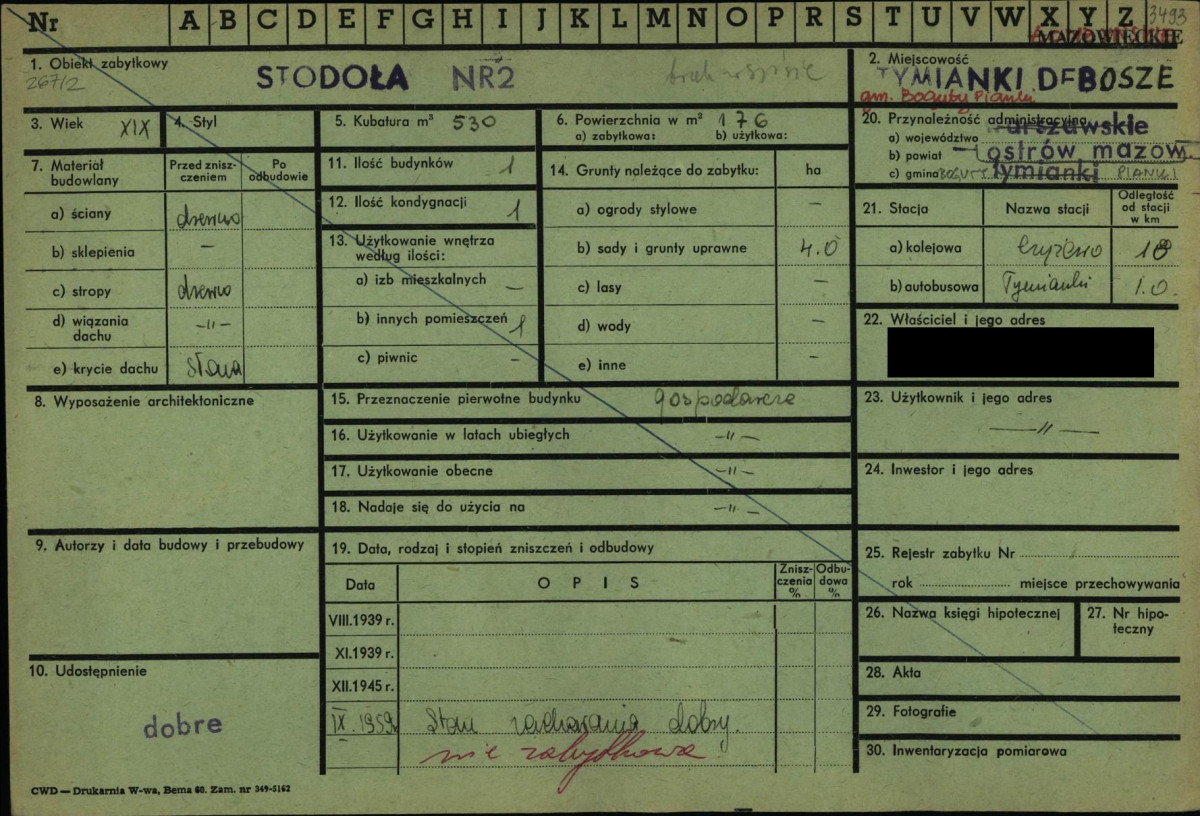 Nr A B C D E F G H I J K L M N O P R S T U V W X Y Z 3493
MAZOWIECKIE
1. Obiekt zabytkowy
267/2
STODOŁA NR2
2. Miejscowość
TYMIANKI DĘBOSZE
gm. Boguty Pianki
3. Wiek XIX
4. Styl
5. Kubatura m³ 530
6. Powierzchnia w m² 176
a) zabytkowa: b) użytkowa:
20. Przynależność administracyjna
a) województwo warszawskie
b) powiat ostrów mazow.
c) gmina BOGUTY tymianki PIANKI
7. Materiał budowlany
Przed zniszczeniem
Po odbudowie
a) ściany drewno
b) sklepienia –
c) stropy drewno
d) wiązania dachu –"–
e) krycie dachu słoma
11. Ilość budynków 1
12. Ilość kondygnacji 1
13. Użytkowanie wnętrza według ilości:
a) izb mieszkalnych –
b) innych pomieszczeń 1
c) piwnic –
14. Grunty należące do zabytku: ha
a) ogrody stylowe –
b) sady i grunty uprawne 4.0
c) lasy –
d) wody –
e) inne –
21. Stacja Nazwa stacji Odległość od stacji w km
a) kolejowa Czyżewo 18
b) autobusowa Tymianki 1.0
22. Właściciel i jego adres
8. Wyposażenie architektoniczne
15. Przeznaczenie pierwotne budynku gospodarcze
16. Użytkowanie w latach ubiegłych –"–
17. Użytkowanie obecne –"–
18. Nadaje się do użycia na –"–
23. Użytkownik i jego adres
–"–
24. Inwestor i jego adres
9. Autorzy i data budowy i przebudowy
19. Data, rodzaj i stopień zniszczeń i odbudowy
Data OPIS Zniszczenia % Odbudowa %
VIII.1939 r.
XI.1939 r.
XII.1945 r.
IX.1959 Stan zachowania dobry.
nie zabytkowa
25. Rejestr zabytku Nr
rok miejsce przechowywania
26. Nazwa księgi hipotecznej
27. Nr hipoteczny
28. Akta
29. Fotografie
30. Inwentaryzacja pomiarowa
10. Udostępnienie
dobre
CWD — Drukarnia W-wa, Bema 60. Zam. nr 349-5162